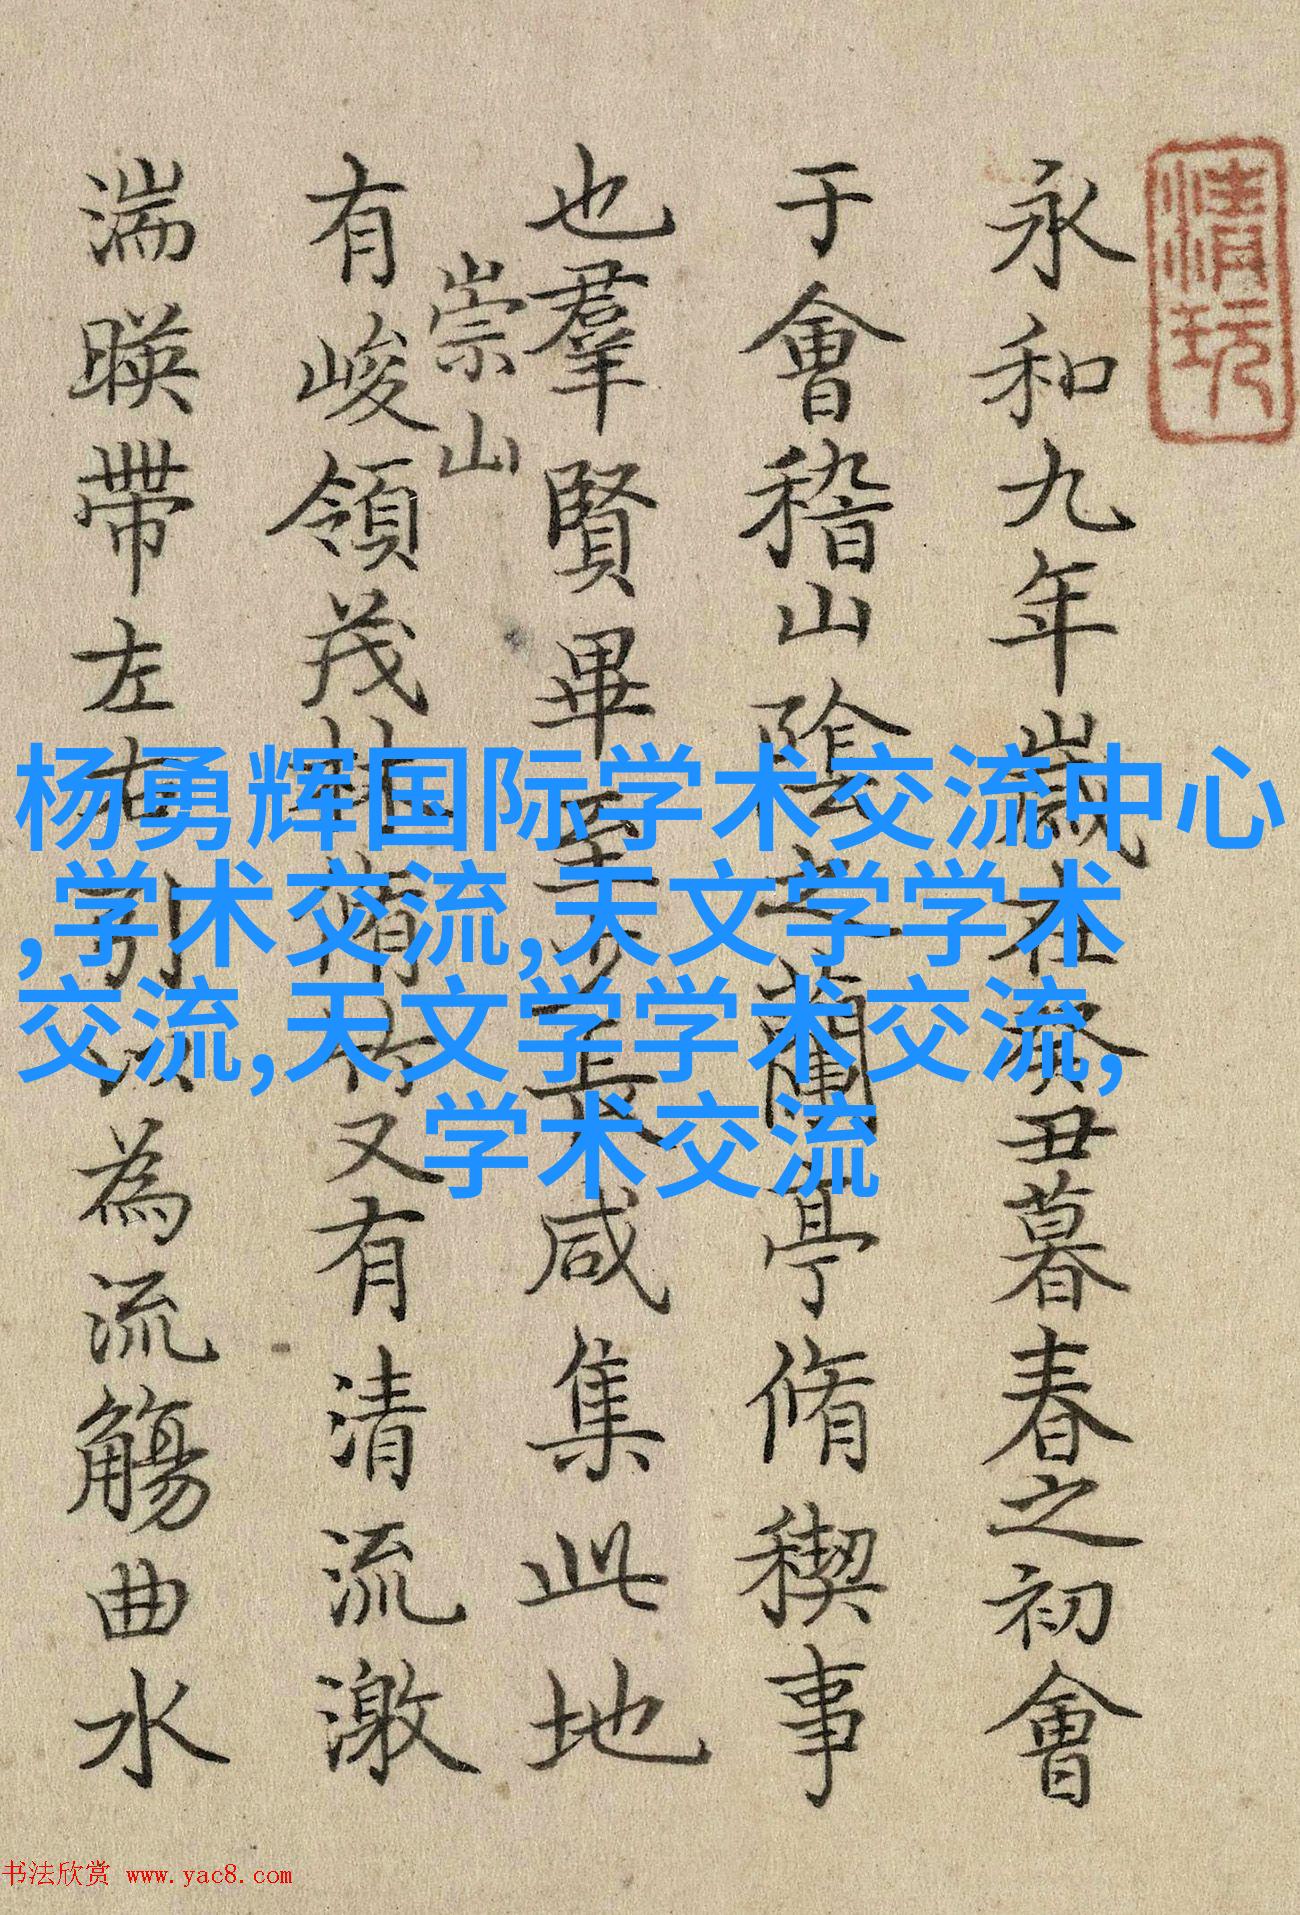 清玩
永和九年歲在癸丑暮春之初會
于會稽山陰之蘭亭脩稧事
也羣賢畢至少長咸集此地
崇山
有峻領茂林脩竹又有清流激
湍暎帶左右引以為流觴曲水
杨勇辉国际学术交流中心
,学术交流,天文学学术
交流,天文学学术交流,
学术交流
书法欣赏 www.yac8.com